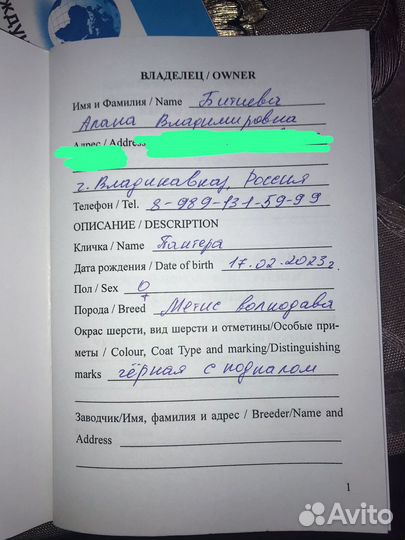 ЖДУН
ВЛАДЕЛЕЦ / OWNER
Имя и Фамилия / Name Битиева
Алана Владимировна
Адрес / Address
г. Владикавказ, Россия
Телефон / Tel. 8-989-131-59-99
ОПИСАНИЕ / DESCRIPTION
Кличка / Name Пантера
Дата рождения / Date of birth 17.02.2023г.
Пол / Sex ♀
Порода / Breed Метис волкодава
Окрас шерсти, вид шерсти и отметины/Особые при-
меты / Colour, Coat Type and marking/Distinguishing
marks чёрная с подпалом
Заводчик/Имя, фамилия и адрес / Breeder/Name and
Address
1
Avito